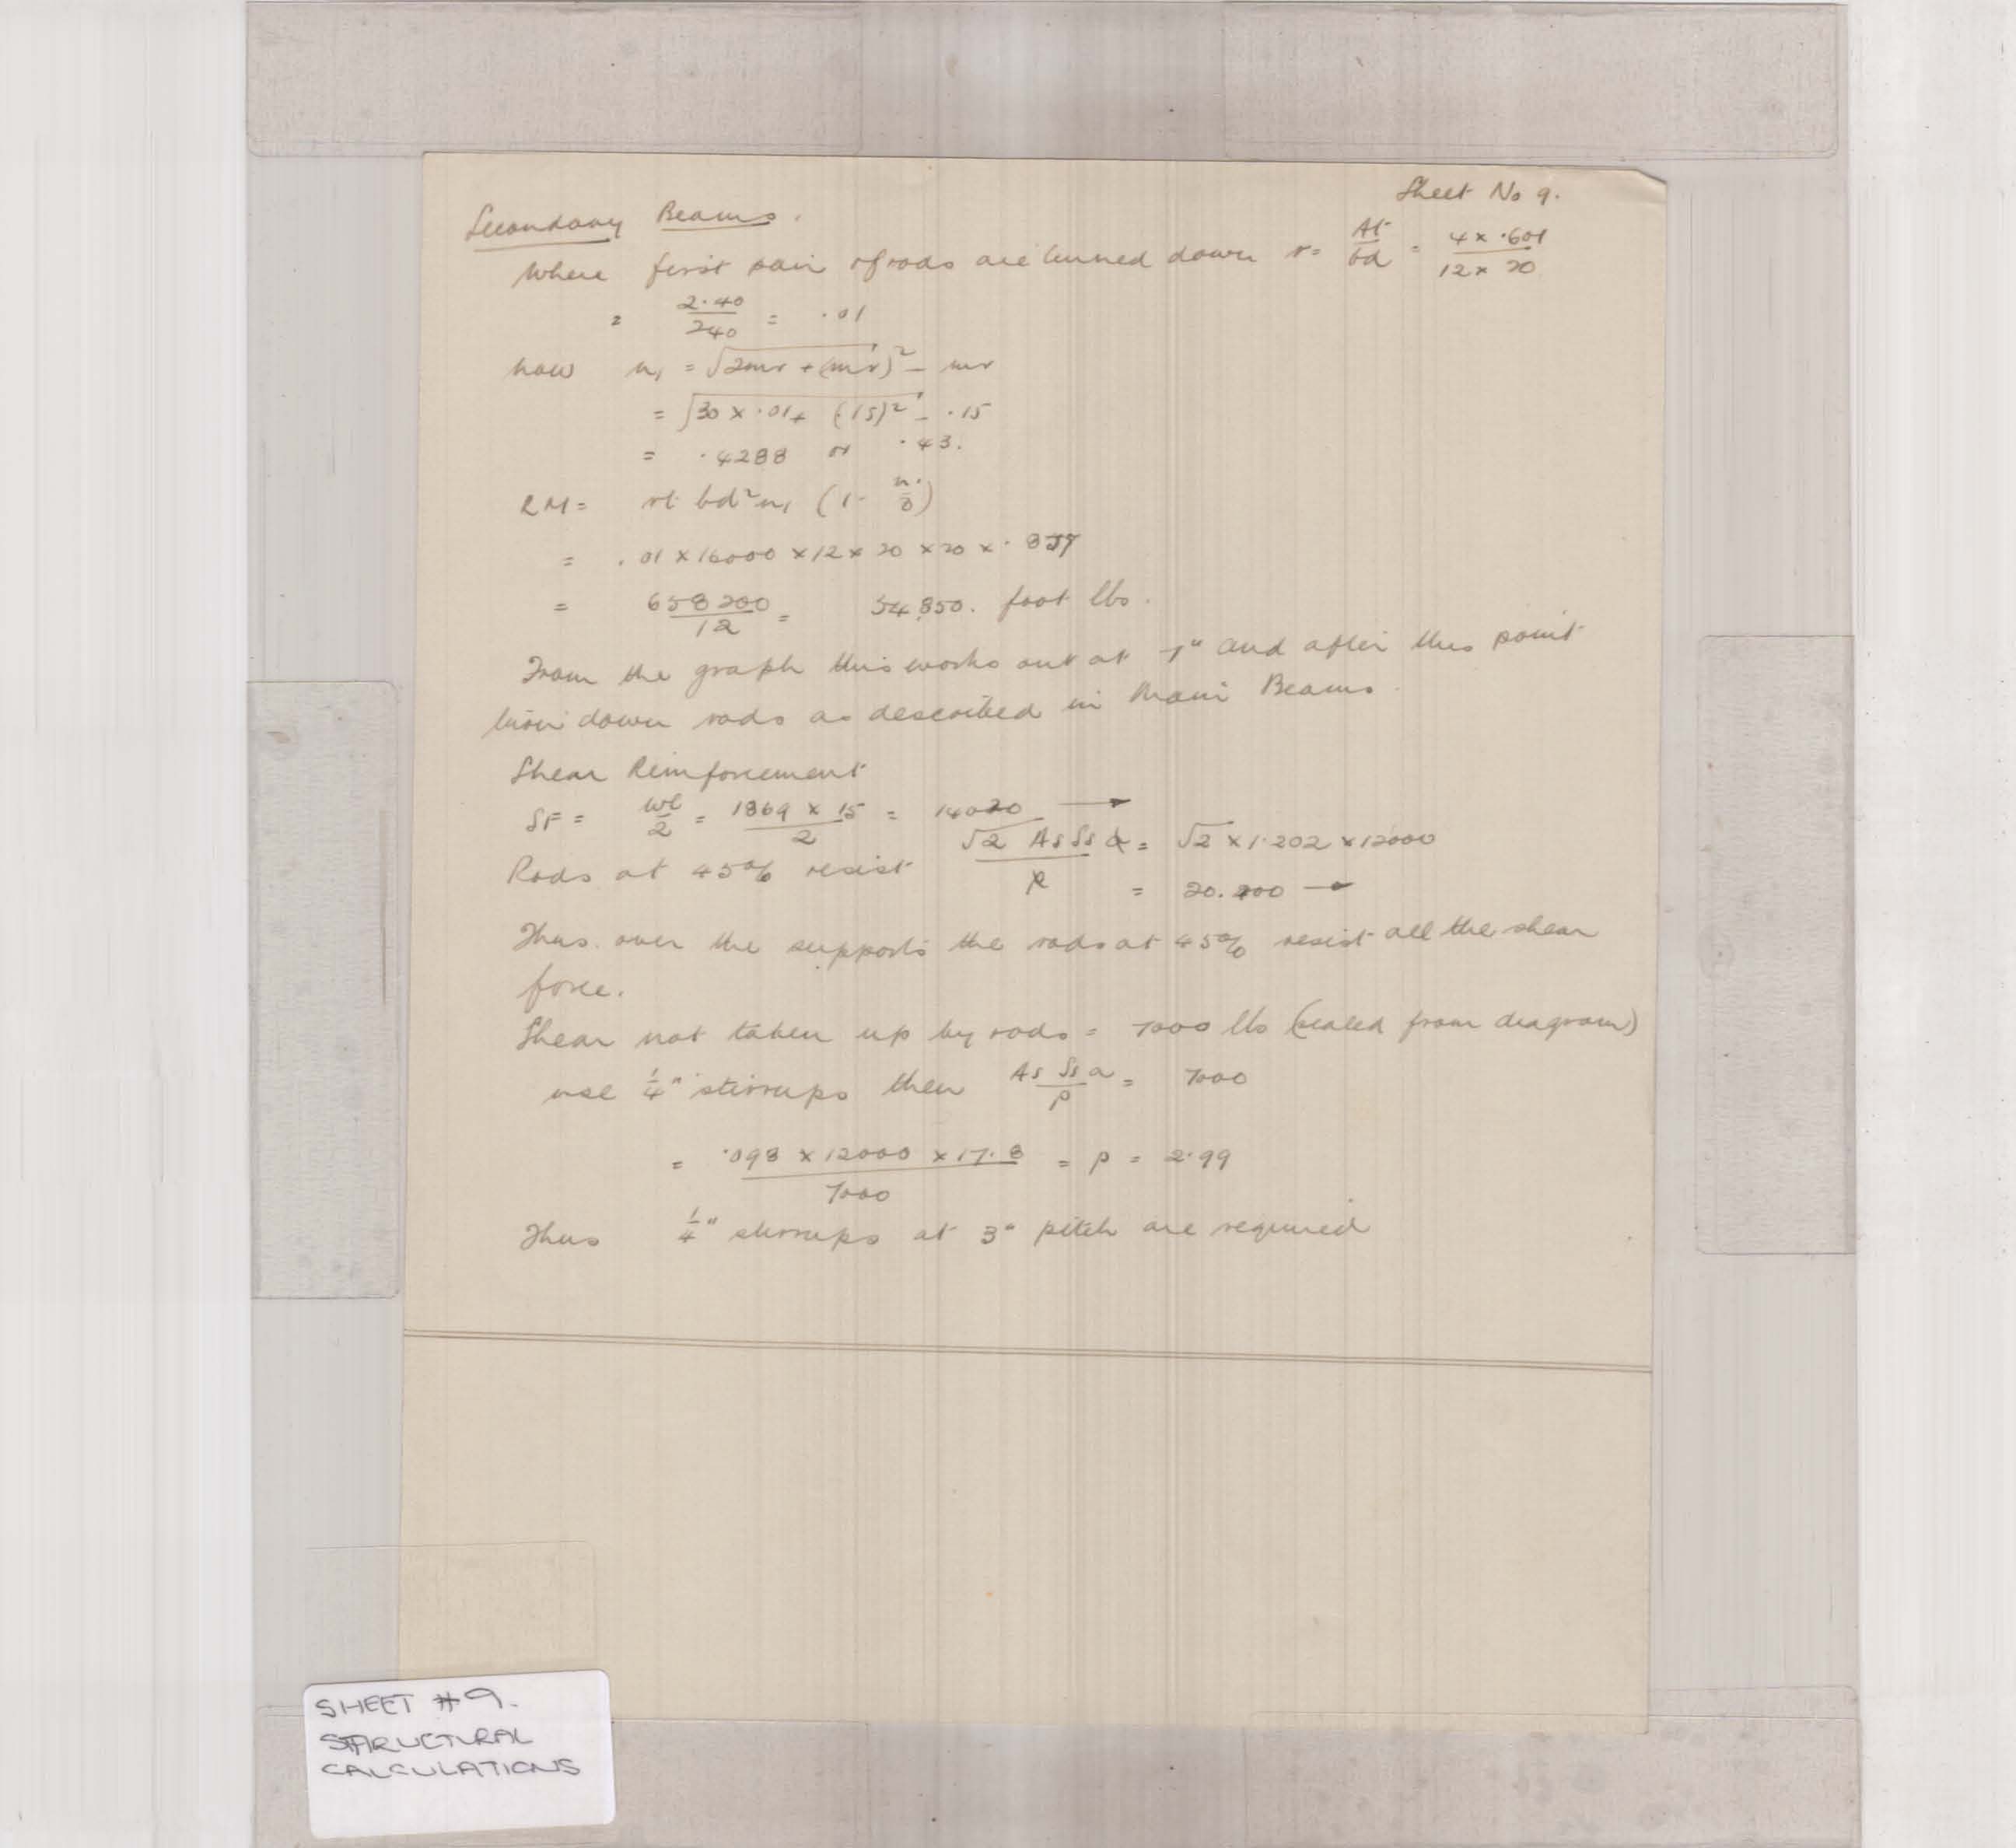 Sheet No 9.
Secondary Beams.
Where first pair of rods are turned down r = At/bd = 4 × ·601/12 × 20
= 2·40/240 = ·01
now n₁ = √2mr + (mr)² - mr
= √30 × ·01 + (·15)² - ·15
= ·4288 or ·43.
RM = rt bd² n₁ (1 - n₁/3)
= .01 × 16000 × 12 × 20 × 20 × ·857
= 658200/12 = 54,850. foot lbs.
From the graph this works out at 7" and after this point
turn down rods as described in Main Beams.
Shear Reinforcement
SF = wl/2 = 1869 × 15/2 = 14020 →
Rods at 45% resist √2 As Ss a/p = √2 × 1·202 × 12000
= 20.400 →
Thus over the supports the rods at 45% resist all the shear
force.
Shear not taken up by rods = 7000 lbs (scaled from diagram)
use ¼" stirrups then As Ss a/p = 7000
= ·098 × 12000 × 17.8/7000 = p = 2·99
Thus ¼" stirrups at 3" pitch are required
SHEET #9.
STRUCTURAL
CALCULATIONS